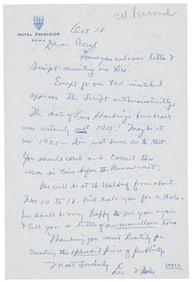 HOTEL EXCELSIOR
ROMA
Oct 18
Dear Carl
Found your welcome letter &
Script awaiting us here.
Except for bad mistakes I
approve the Script enthusiastically.
The date of Pres Harding's broadcast
was certainly not 1915! Maybe it
was 1922 – Am not sure as to that.
You should check and correct this
error in time before the Broadcast.
We will be at the Waldorf from about
Nov 10 to 18. Will call you for a date.
We shall be very happy to see you again
& tell you of our marvellous tour.
Thanking you most heartily for
creating this splendid piece of publicity
Most Sincerely
Lee &